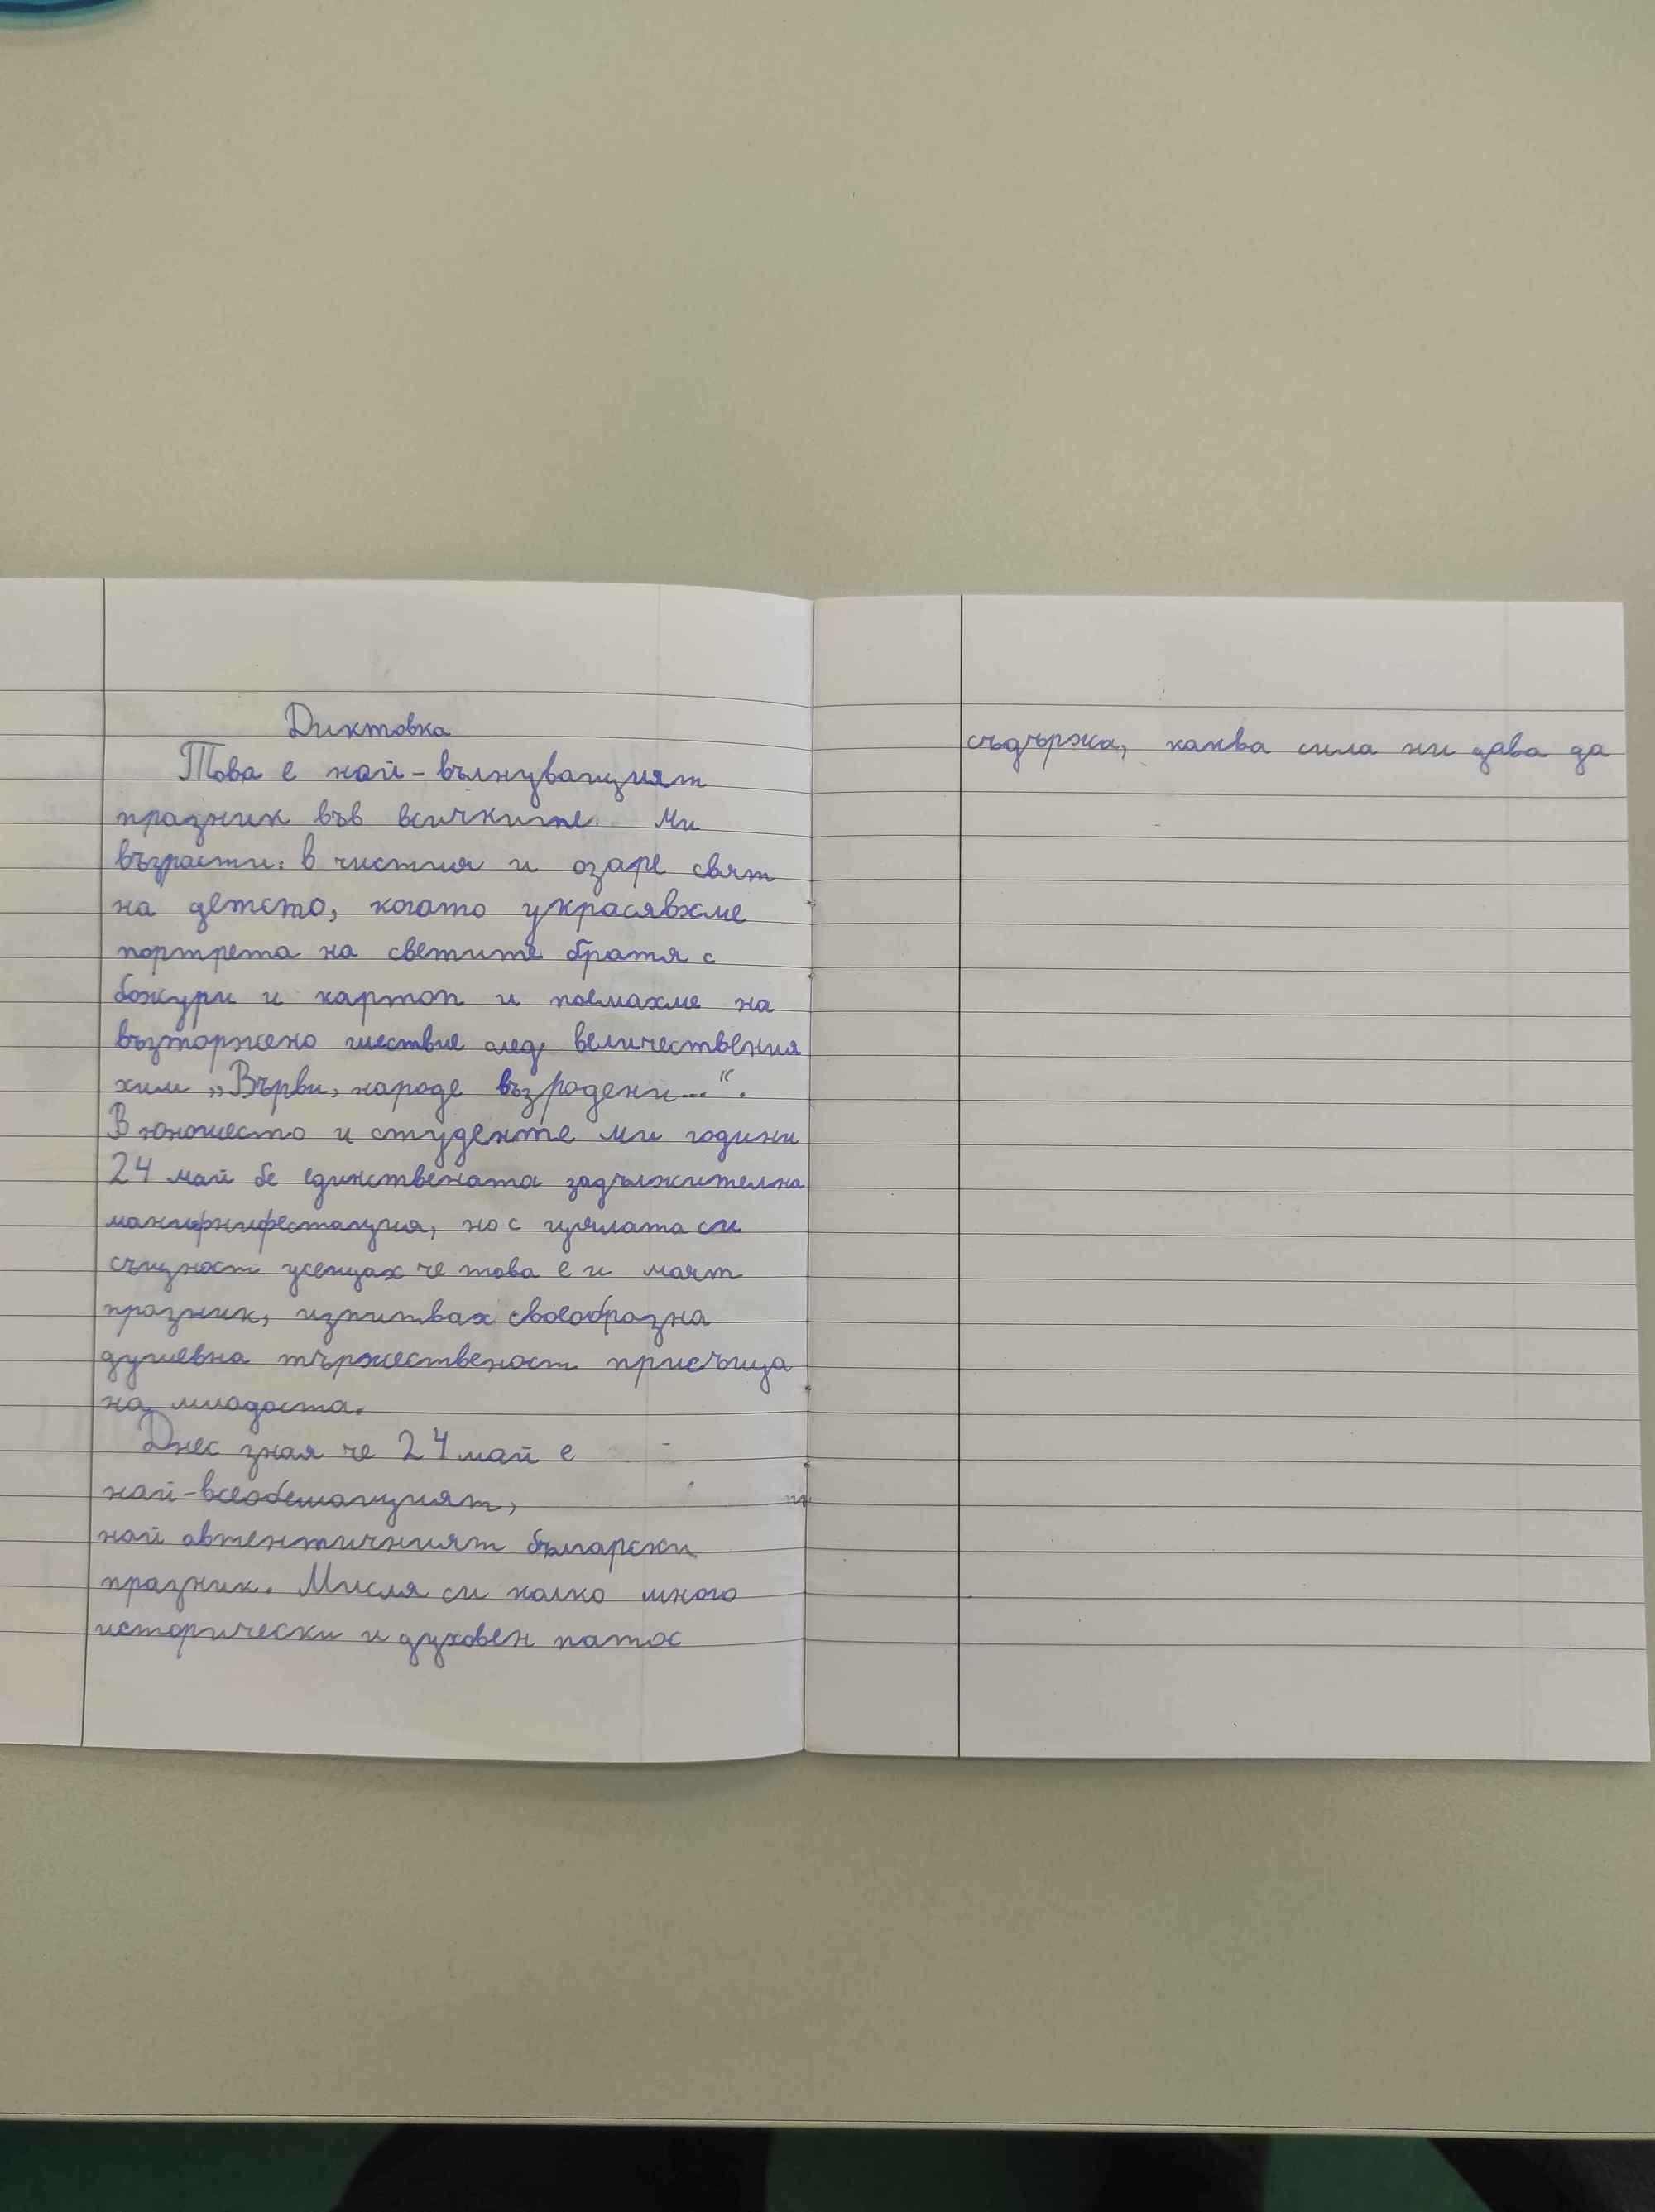 Диктовка
Това е най-вълнуващият
празник във всичките ми
възрасти: в чистия и озаре свят
на детсто, когато украсявхме
портрета на светите братя с
божури и картоп и поемахме на
възторжено шествие след величествения
хим „Върви, народе възродени...“.
В юношесто и студенте ми години
24 май бе единствената задължителна
манифнифестация, но с цялата си
същност усещах че това е и моят
празник, изпитвах своеобразна
душевна тържественост присъща
на младоста.
Днес зная че 24 май е
най-всеобемащият,
най автентичният български
празник. Мисля си колко много
исторически и духовен патос
съдържа, каква сила ни дава да